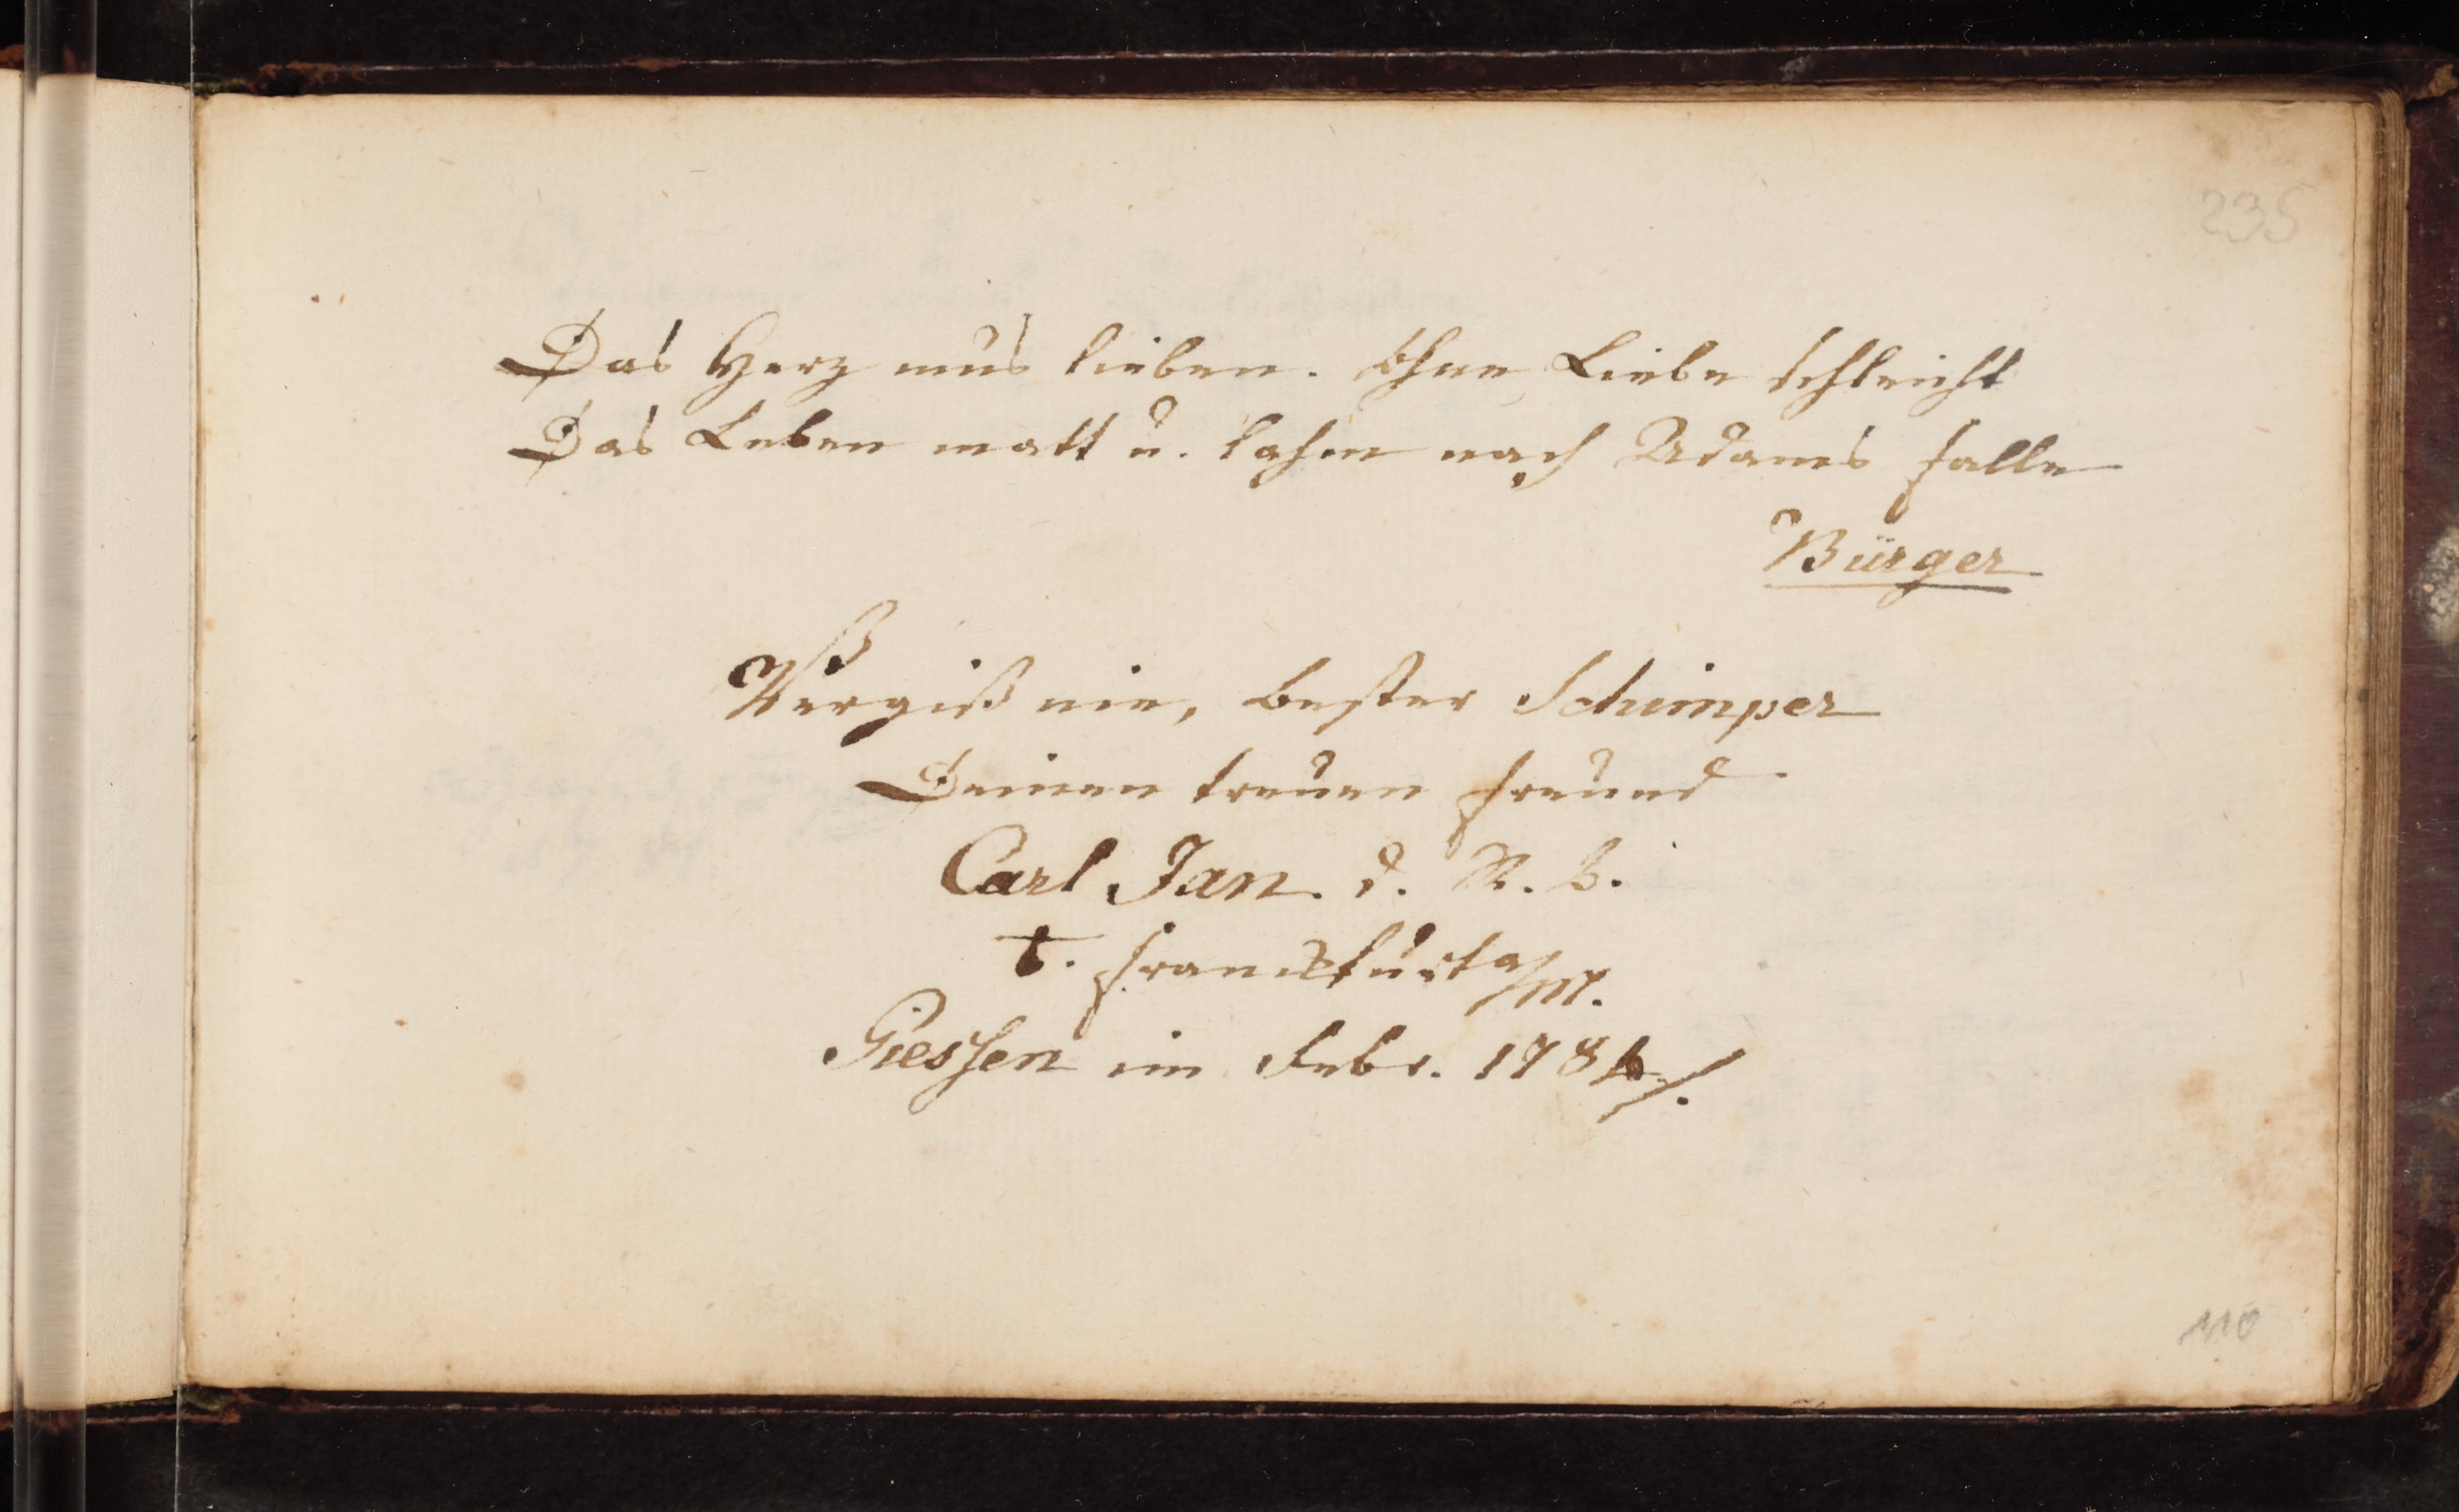 235
Das Herz mus lieben. Ohne Liebe schleicht
Das Leben matt u. lahm nach Adams Falle
Bürger
Vergiß nie, bester Schimper
Deinen treuen Freund
Carl Jan. d. R. B.
v. Franckfurt a/M.
Giessen im Febr. 1784/.
110